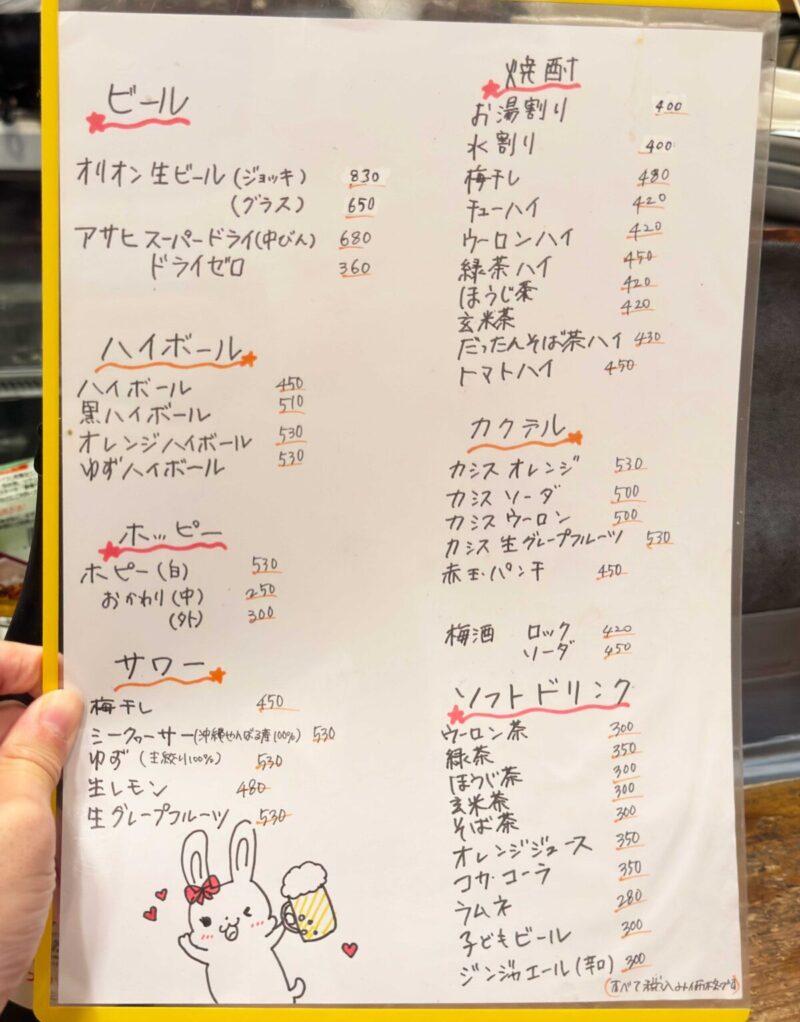 ビール
オリオン生ビール(ジョッキ) 830
(グラス) 650
アサヒスーパードライ(中びん) 680
ドライゼロ 360
ハイボール
ハイボール 450
黒ハイボール 510
オレンジハイボール 530
ゆずハイボール 530
ホッピー
ホッピー(白) 530
おかわり(中) 250
(外) 300
サワー
梅干し 450
シークヮーサー(沖縄やんばる産100%) 530
ゆず(手絞り100%) 530
生レモン 480
生グレープフルーツ 530
焼酎
お湯割り 400
水割り 400
梅干し 480
チューハイ 420
ウーロンハイ 420
緑茶ハイ 450
ほうじ茶 420
玄米茶 420
だったんそば茶ハイ 430
トマトハイ 450
カクテル
カシスオレンジ 530
カシスソーダ 500
カシスウーロン 500
カシス生グレープフルーツ 530
赤玉・パンチ 450
梅酒 ロック 420
ソーダ 450
ソフトドリンク
ウーロン茶 300
緑茶 350
ほうじ茶 300
玄米茶 300
そば茶 300
オレンジジュース 350
コカ・コーラ 350
ラムネ 280
子どもビール 300
ジンジャエール(辛口) 300
(すべて税込み価格です)